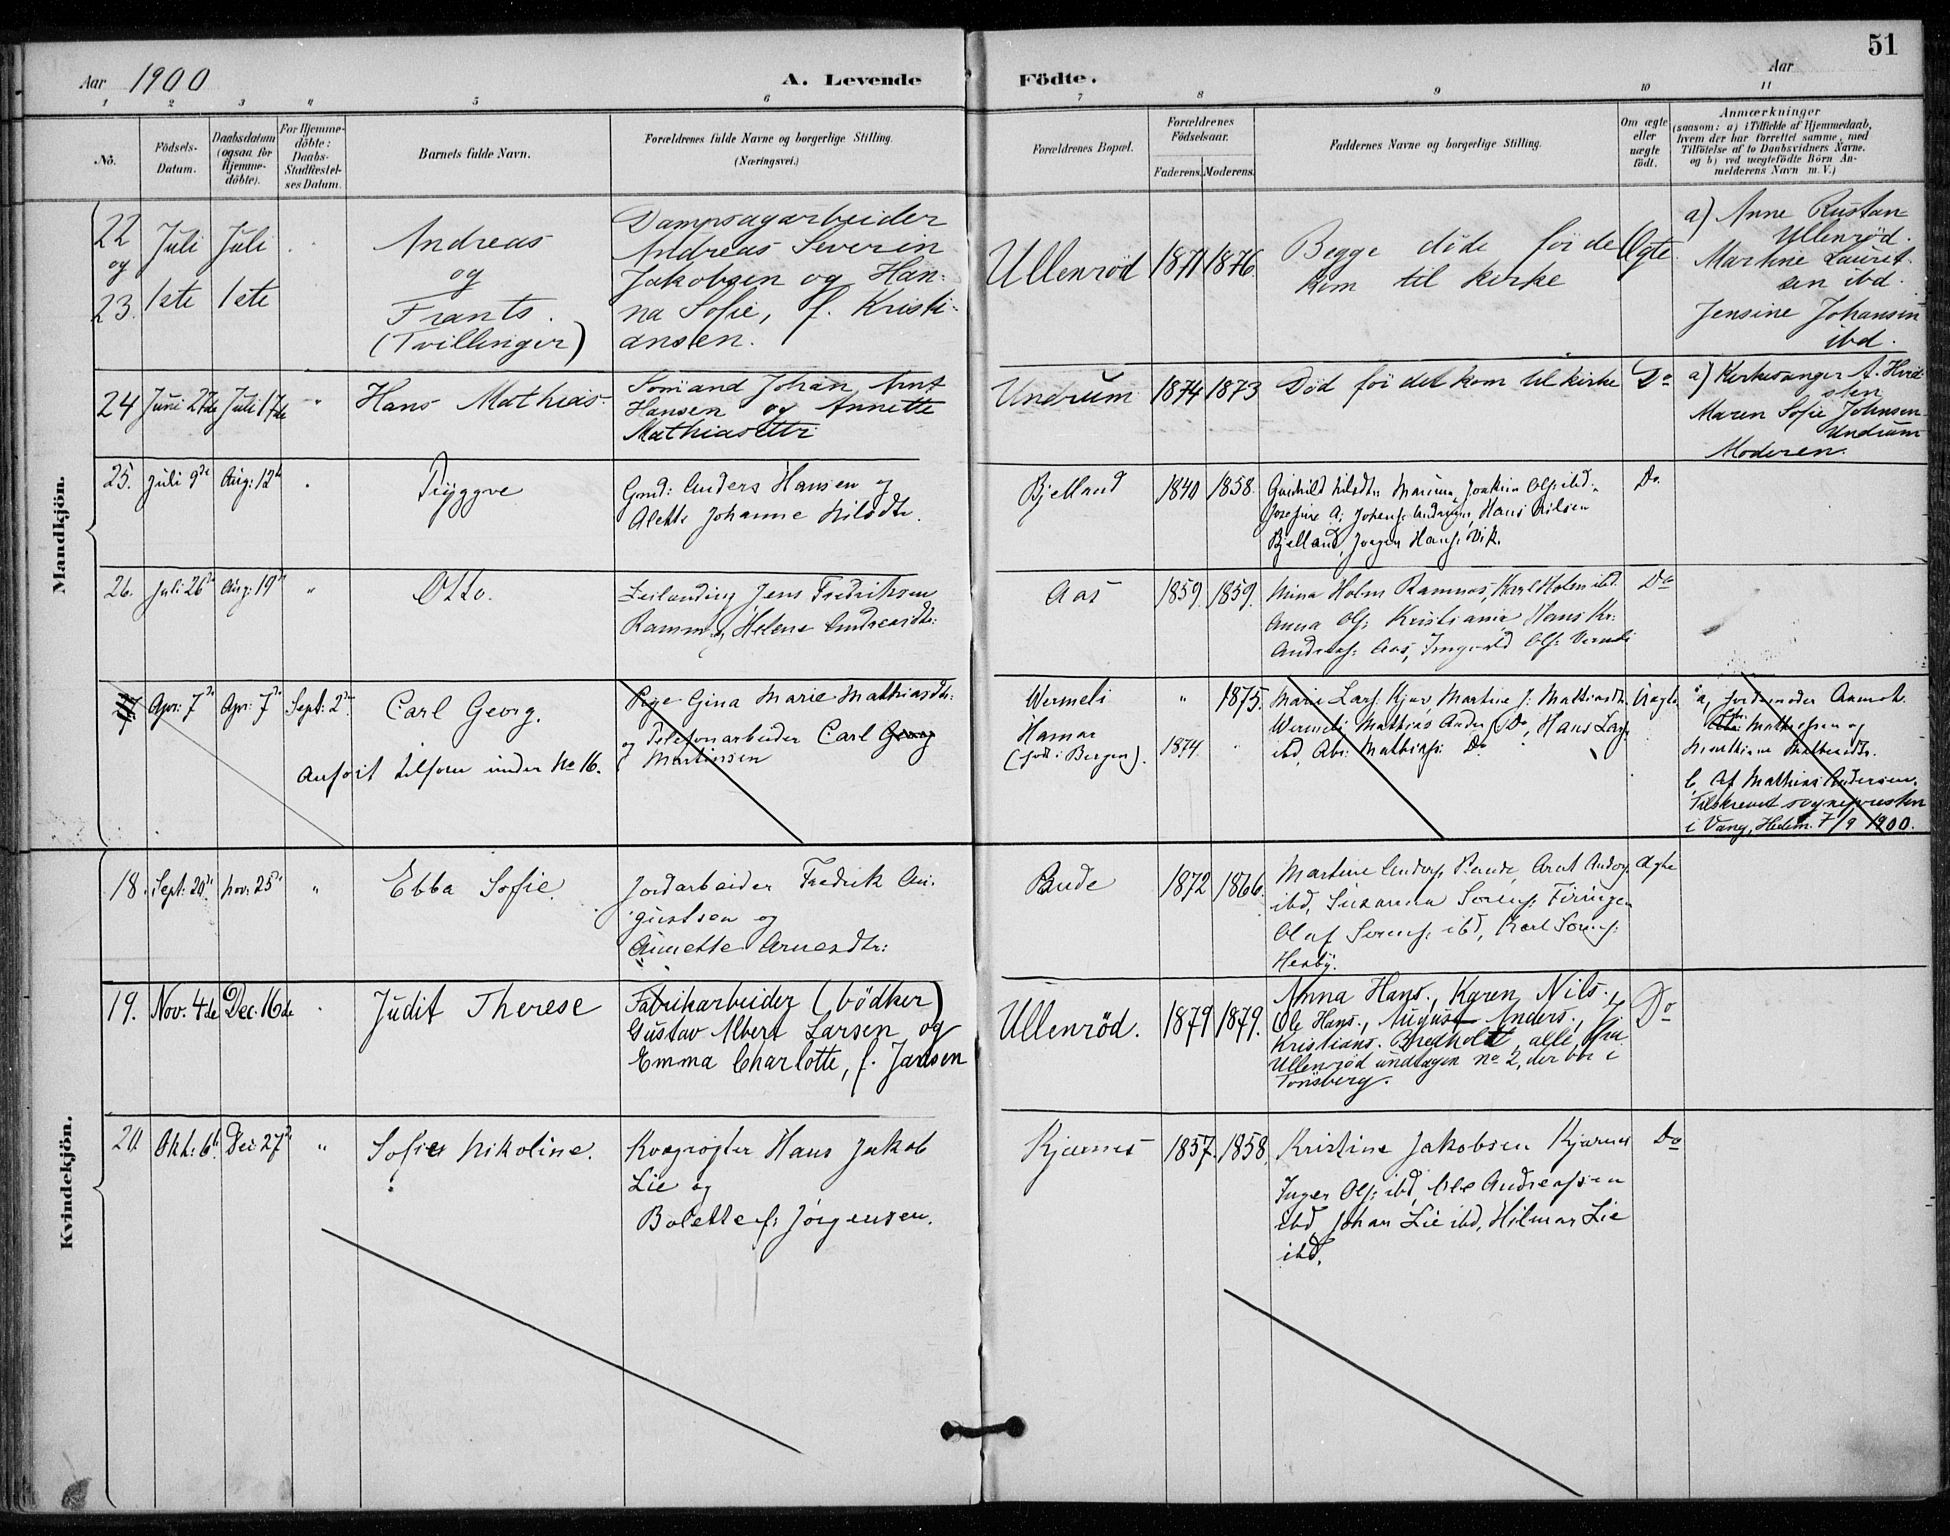 51
Aar 1900
A. Levende Födte.
Aar
1 2 3 4 5 6 7 8 9 10 11
No.
Födsels-
Datum.
Daabsdatum
(ogsaa for
Hjemme-
döbte).
For Hjemme-
döbte:
Daabs-
Stadfæstel-
ses Datum.
Barnets fulde Navn.
Forældrenes fulde Navne og borgerlige Stilling.
(Næringsvei.)
Forældrenes Bopæl.
Forældrenes
Födselsaar.
Faderens. Moderens.
Faddernes Navne og borgerlige Stilling.
Om ægte
eller
uægte
födt.
Anmærkninger
(saasom: a) i Tilfælde af Hjemmedaab,
hvem der har forrettet samme, med
Tilföielse af to Daabsvidners Navne.
og b) ved uægtefödte Börn An-
melderens Navn m. V.)
Mandkjön.
22
og
23.
Juli
1ste
Juli
1ste
Andreas
og
Frants.
(Tvillinger)
Dampsagarbeider
Andreas Severin
Jakobsen og Han-
na Sofie, f. Kristi-
ansen.
Ullenröd
1871 1876
Begge døde før de
kom til kirke
Ægte
a) Anne Rustan
Ullenröd.
Martine Laurit-
sen ibd.
Jensine Johansen
ibd.
24
Juni 27de
Juli 17de
"
Hans Mathias.
Sømand Johan Arnt
Hansen og Annette
Mathiasdtr
Undrum
1874 1873
Död för det kom til kirke
Do
a) Kirkesanger A. Hvid-
sten
Maren Sofie Johnsen
Undrum
Moderen.
25.
Juli 9de
Aug: 12te
Tryggve
Gmd: Anders Hansen og
Alette Johanne Nilsdtr.
Bjelland
1840 1858.
Nilsdtr.
Hans Nilsen
Bjelland, Jørgen Hans: Vik.
Do.
26.
Juli 26de
Aug: 19de
"
Otto.
Jens Fredriksen
Ramm og Helene Andreasdtr:
Aas
1859. 1859.
Mina Holm Ramnæs, Karl Holm ibd.
Anna Ols: Kristiania, Hans Kr:
Andreas: Aas, Ols:
Do
17
Apr: 7de
Apr: 7de
Sept: 2den
Carl Georg.
Anført tilforn under No 16.
Pige Gina Marie Mathiasdtr:
og Telefonarbeider Carl Georg
Martinsen
Wermeli
Hamar
(født i Bergen).
" 1875.
1874. "
Marie Lars: Martine J: Mathiasdtr.
Wermeli Mathias Anders: Do, Hans Lars:
ibd, Abr: Mathias: Do
Uægte
a, Jordemoder
Mathisen og
Mathiasdtr.
b, Af Mathias Andersen.
Tilskrevet sognepresten
i Vang, Hedm. 7/9 1900.
Kvindekjön.
18.
Sept: 20de
Nov: 25de
"
Ebba Sofie.
Jordarbeider Fredrik Au-
gustsen og
Annette Arnesdtr:
Rude
1872 1866.
Martine Anders: Rude, Arnt Anders:
ibd, Susanna Sørens:
Olaf Sørens: ibd, Karl Sørens:
Hesby.
Ægte
19.
Nov. 4de
Dec. 16de
Judit Therese
Fabrikarbeider (bödker)
Gustav Albert Larsen og
Emma Charlotte, f. Jansen
Ullenröd.
1879 1879.
Anna Hans., Karen Nils.,
Ole Hans., August Anders.,
Kristians. Bredholt, alle fra
Ullenröd undtagen no 2, der bor i
Tønsberg.
Do
20.
Okt: 6te
Dec 27de
"
Sofie Nikoline.
Kvægrøgter Hans Jakob
Lie og
Bolette f: Jørgensen.
Kjærnes
1857. 1858.
Kristine Jakobsen Kjærnes
Inger Ols: ibd, Ole Andreassen
ibd Johan Lie ibd, Hilmar Lie
ibd.
Do